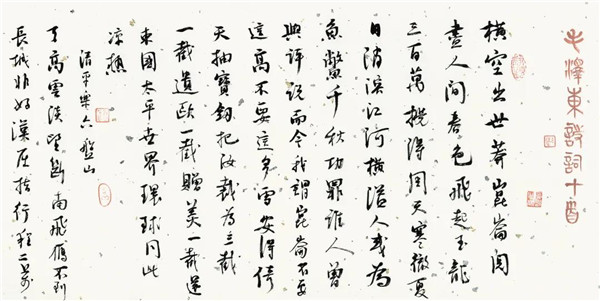 毛澤東詩詞十首
橫空出世莽崑崙閱
盡人間春色飛起玉龍
三百萬攪得周天寒徹夏
日消溶江河橫溢人或為
魚鱉千秋功罪誰人曾
與評說而今我謂崑崙不要
這高不要這多雪安得倚
天抽寶劍把汝裁為三截
一截遺歐一截贈美一截還
東國太平世界環球同此
涼熱
清平樂六盤山
天高雲淡望斷南飛雁不到
長城非好漢屈指行程二萬